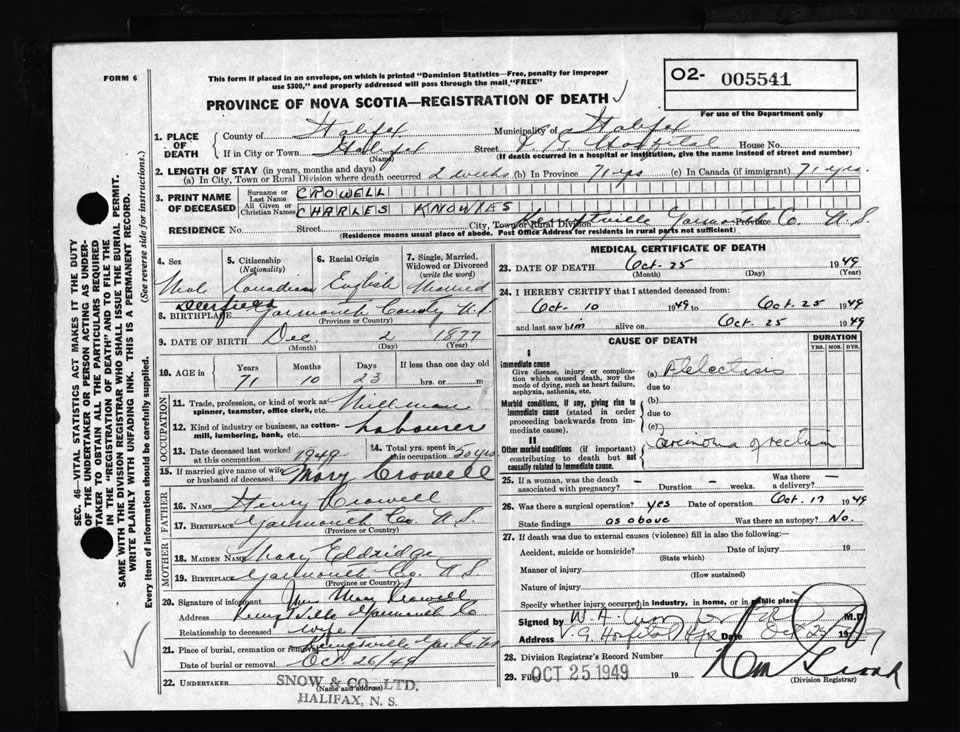 FORM 6
This form if placed in an envelope, on which is printed "Dominion Statistics—Free, penalty for improper
use $300," and properly addressed will pass through the mail, "FREE"
PROVINCE OF NOVA SCOTIA—REGISTRATION OF DEATH
O2- 005541
For use of the Department only
1. PLACE OF DEATH
County of Halifax Municipality of Halifax
If in City or Town Halifax Street V. G. Hospital House No.
(Name) (If death occurred in a hospital or institution, give the name instead of street and number)
2. LENGTH OF STAY (in years, months and days)
(a) In City, Town or Rural Division where death occurred 2 weeks (b) In Province 71 yrs (c) In Canada (if immigrant) 71 yrs.
3. PRINT NAME OF DECEASED
Surname or Last Name CROWELL
All Given or Christian Names CHARLES KNOWLES
RESIDENCE No. Street City, Town or Rural Division Yarmouth Co. N.S. Province
(Residence means usual place of abode. Post Office Address for residents in rural parts not sufficient)
4. Sex Male
5. Citizenship (Nationality) Canadian
6. Racial Origin English
7. Single, Married, Widowed or Divorced (write the word) Married
8. BIRTHPLACE Deerfield Yarmouth County N.S.
(Province or Country)
9. DATE OF BIRTH Dec. 2 1877
(Month) (Day) (Year)
10. AGE in Years 71 Months 10 Days 23 If less than one day old hrs. or m
OCCUPATION
11. Trade, profession, or kind of work as spinner, teamster, office clerk, etc. Millman
12. Kind of industry or business, as cotton-mill, lumbering, bank, etc. Labourer
13. Date deceased last worked at this occupation 1949
14. Total yrs. spent in this occupation 50 yrs
15. If married give name of wife or husband of deceased Mary Crowell
FATHER
16. NAME Henry Crowell
17. BIRTHPLACE Yarmouth Co. N.S.
(Province or Country)
MOTHER
18. MAIDEN NAME Mary Eldridge
19. BIRTHPLACE Yarmouth Co. N.S.
(Province or Country)
20. Signature of informant Mrs Mary Crowell
Address Yarmouth Co
Relationship to deceased wife
21. Place of burial, cremation or removal
Date of burial or removal Oct 26/49
22. UNDERTAKER SNOW & CO. LTD.
(Name and address)
HALIFAX, N. S.
MEDICAL CERTIFICATE OF DEATH
23. DATE OF DEATH Oct. 25 1949
(Month) (Day) (Year)
24. I HEREBY CERTIFY that I attended deceased from
Oct. 10 1949 to Oct 25 1949
and last saw him alive on Oct. 25 1949
CAUSE OF DEATH
DURATION
YRS. MOS. DYS.
I
Immediate cause
Give disease, injury or complication which caused death, not the mode of dying, such as heart failure, asphyxia, asthenia, etc.
(a) Atelectasis
due to
Morbid conditions, if any, giving rise to immediate cause (stated in order proceeding backwards from immediate cause).
(b)
due to
(c)
II
Other morbid conditions (if important) contributing to death but not causally related to immediate cause.
Carcinoma of rectum
25. If a woman, was the death associated with pregnancy? - Duration - weeks. Was there a delivery? -
26. Was there a surgical operation? yes Date of operation Oct. 17 1949
State findings as above Was there an autopsy? No.
27. If death was due to external causes (violence) fill in also the following:—
Accident, suicide or homicide? Date of injury 19
(State which)
Manner of injury
(How sustained)
Nature of injury
Specify whether injury occurred in industry, in home, or in public place
Signed by W. A. M.D.
Address V.G. Hospital Hfx Date Oct 25 1949
28. Division Registrar's Record Number
29. Filed OCT 25 1949 19
(Division Registrar)
SEC. 46—VITAL STATISTICS ACT MAKES IT THE DUTY
OF THE UNDERTAKER OR PERSON ACTING AS UNDER-
TAKER TO OBTAIN ALL THE PARTICULARS REQUIRED
IN THE "REGISTRATION OF DEATH" AND TO FILE THE
SAME WITH THE DIVISION REGISTRAR WHO SHALL ISSUE THE BURIAL PERMIT.
WRITE PLAINLY WITH UNFADING INK. THIS IS A PERMANENT RECORD.
Every item of information should be carefully supplied. (See reverse side for instructions.)